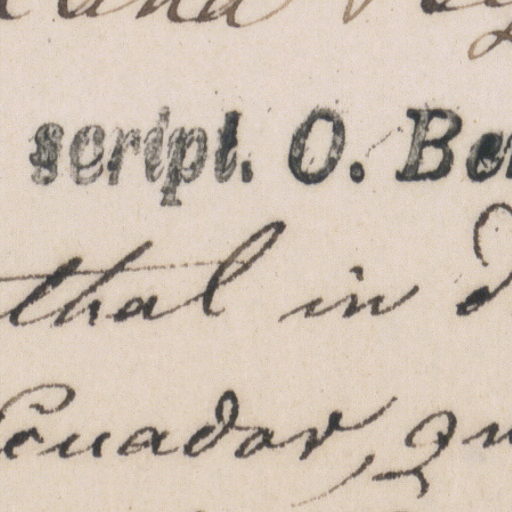 script. O. Be
thal in d
Ecuador, zu